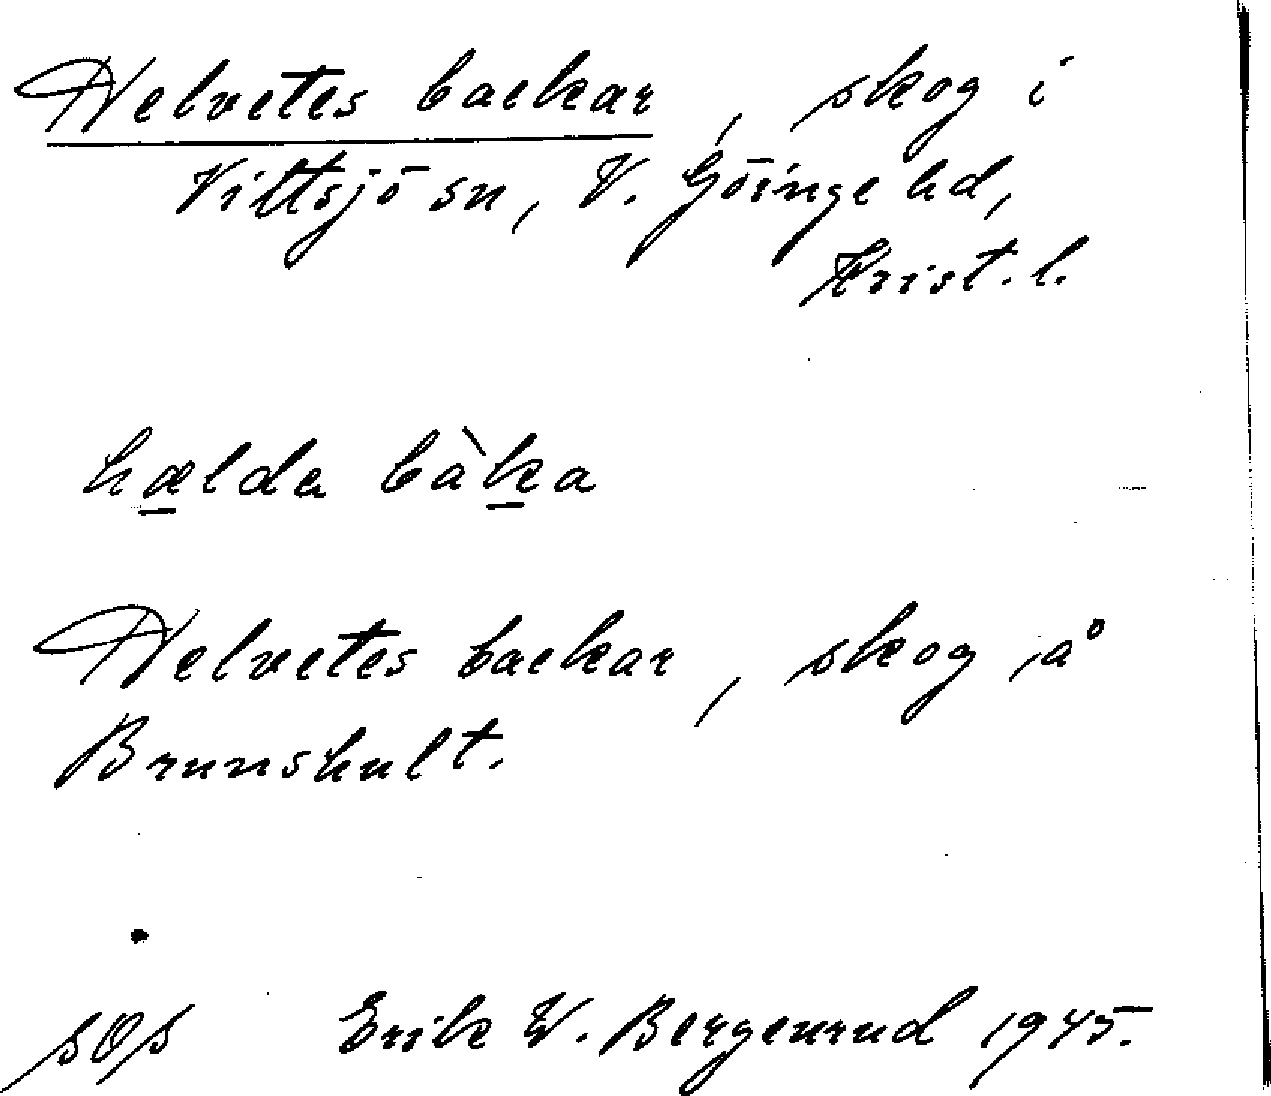 Helvetes backar, skog i
Vittsjö sn, V. Göinge hd,
Krist. l.
hælda bàka
Helvetes backar, skog å
Brunshult.
SOS Erik W. Bergenrud 1945.